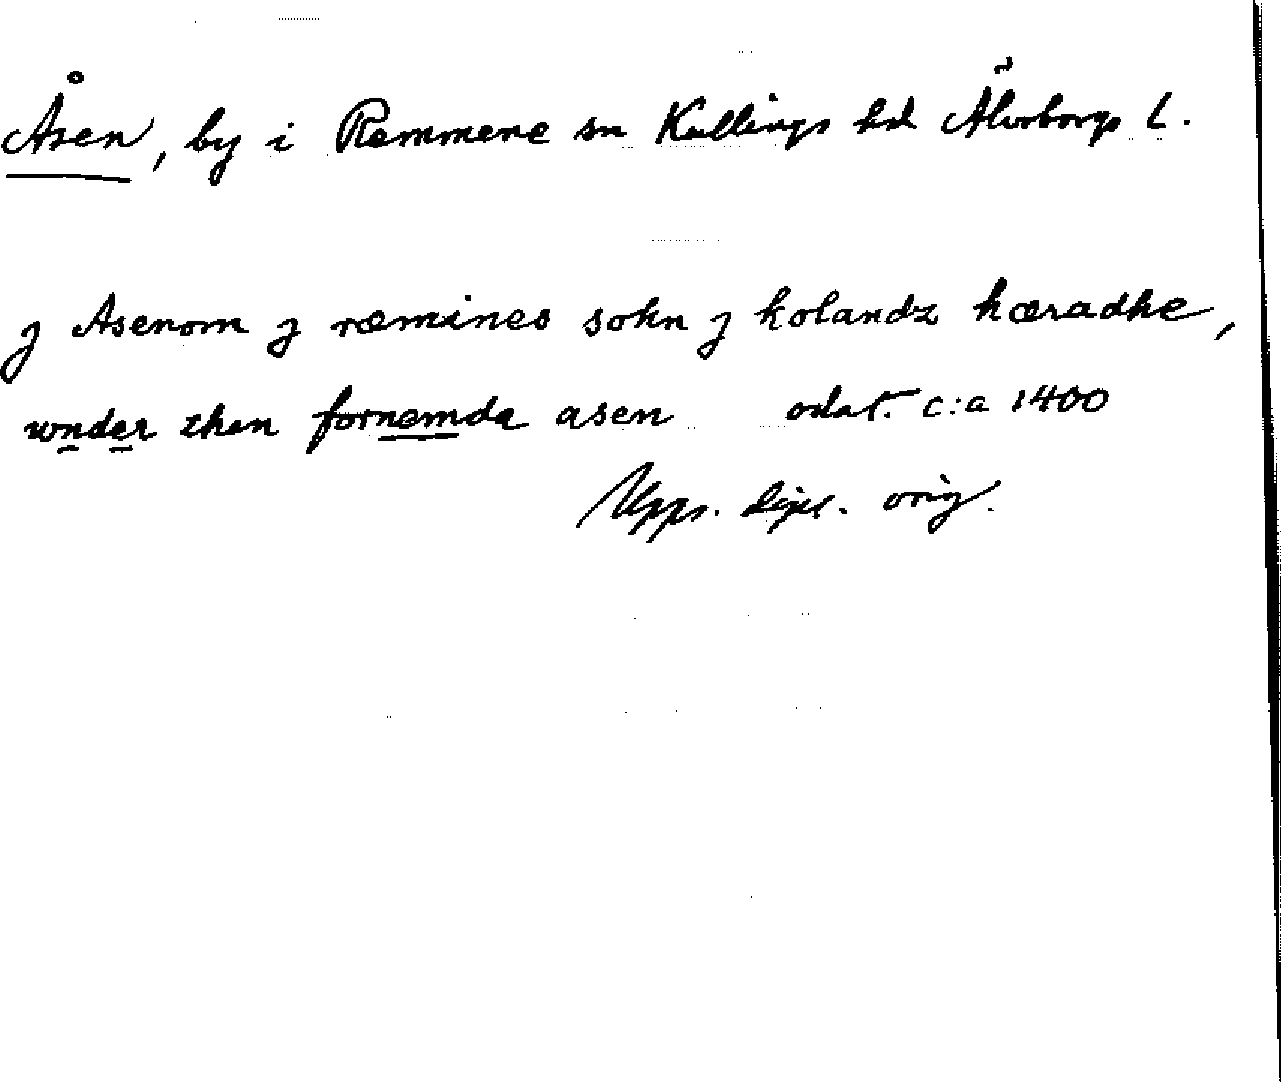 Åsen, by i Remmene sn Kullings hd Älvsborgs l.
j Asenom j ræmines sokn j kolandz hæradhe,
wnder then fornemda asen odat. c:a 1400
Upps. dipl. orig.